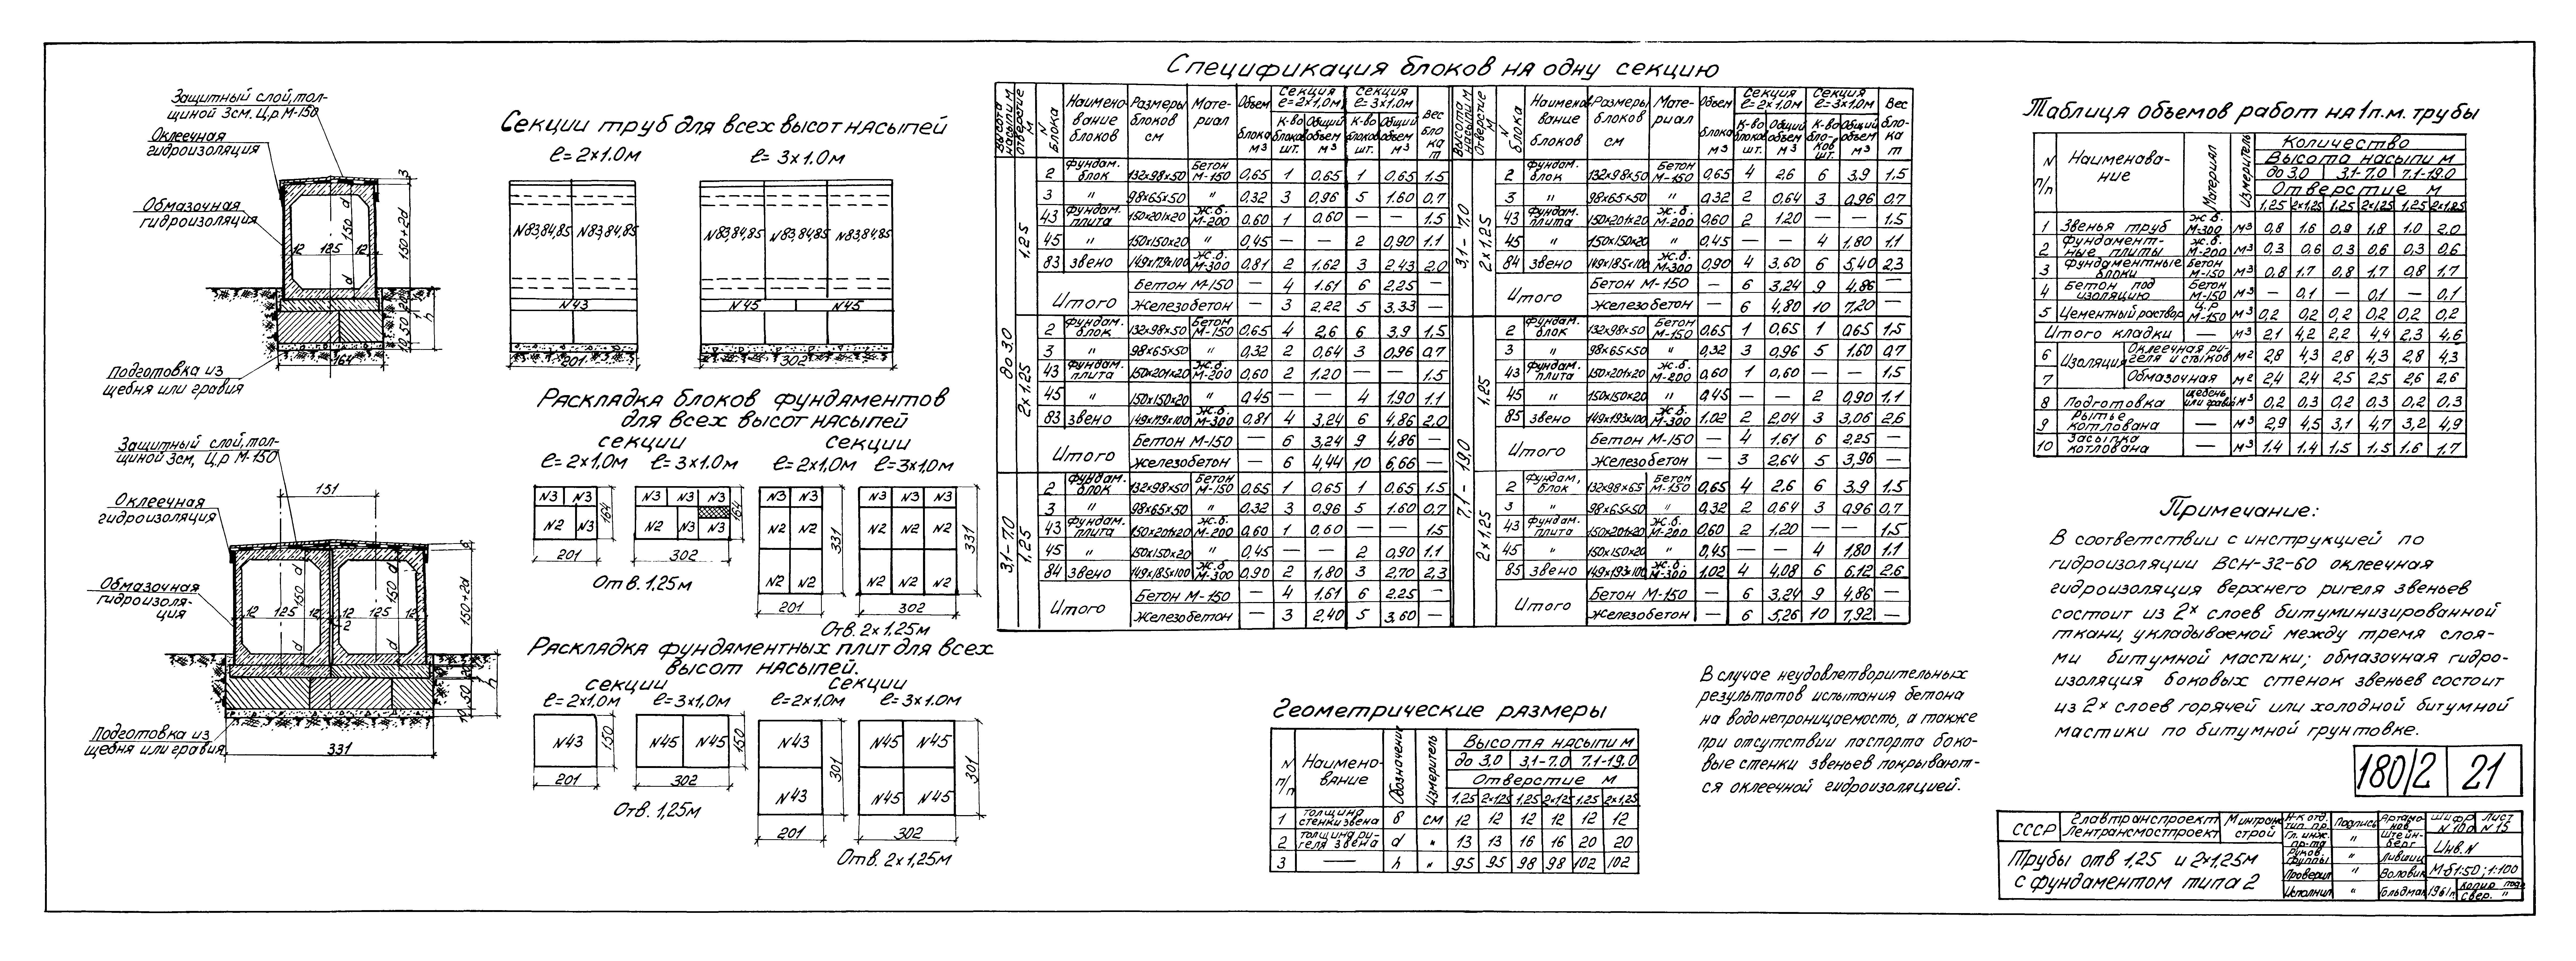 Защитный слой, тол-
щиной 3см. Ц.р М-150
Оклеечная
гидроизоляция
Обмазочная
гидроизоляция
Подготовка из
щебня или гравия
3
d
150
12 125 12
150+2d
d
20
10 50
h
164
Защитный слой, тол-
щиной 3см, Ц.р М-150
151
Оклеечная
гидроизоляция
Обмазочная
гидроизоля-
ция
12 125 12 12 125 12
2
150+2d
10 50
h
Подготовка из
щебня или гравия
331
Секции труб для всех высот насыпей
ℓ=2×1.0м ℓ=3×1.0м
N83,84,85 N83,84,85 N83,84,85 N83,84,85 N83,84,85
N43 N45 N45
201 302
Раскладка блоков фундаментов
для всех высот насыпей
секции секции
ℓ=2×1,0м ℓ=3×1.0м ℓ=2×1,0м ℓ=3×1,0м
N3 N3 N3 N3 N3 N3 N3 N3 N3 N3
N2 N3 164 N2 N3 N3 164 N2 N2 331 N2 N2 N2 331
N2 N2 N2 N2 N2
201 302 201 302
Отв. 1,25м
Отв. 2×1,25м
Раскладка фундаментных плит для всех
высот насыпей.
секции секции
ℓ=2×1,0м ℓ=3×1,0м ℓ=2×1,0м ℓ=3×1,0м
N43 150 N45 N45 150 N43 301 N45 N45 301
N43 N45 N45
201 302 201 302
Отв. 1,25м
Отв. 2×1,25м
Спецификация блоков на одну секцию
Высота насыпи м
отверстие м
N блока
Наимено-вание блоков
Размеры блоков см
Мате-риал
Объем блока м³
Секция ℓ=2×1,0м
Секция ℓ=3×1.0м
К-во блоков шт.
Общий объем м³
К-во блоков шт.
Общий объем м³
Вес бло ка т
до 3.0
1.25
2 фундам. блок 132×98×50 Бетон М-150 0,65 1 0,65 1 0,65 1.5
3 " 98×65×50 " 0,32 3 0,96 5 1.60 0,7
43 фундам. плита 150×201×20 ж.б. М-200 0,60 1 0,60 — — 1.5
45 " 150×150×20 " 0,45 — — 2 0,90 1.1
83 звено 149×179×100 ж.б. М-300 0,81 2 1.62 3 2,43 2,0
Итого Бетон М-150 — 4 1.61 6 2,25 —
Железобетон — 3 2.22 5 3.33 —
2×1.25
2 фундам. блок 132×98×50 Бетон М-150 0,65 4 2,6 6 3,9 1,5
3 " 98×65×50 " 0,32 2 0,64 3 0,96 0,7
43 фундам. плита 150×201×20 ж.б. М-200 0,60 2 1.20 — — 1.5
45 " 150×150×20 " 0,45 — — 4 1.90 1.1
83 звено 149×179×100 ж.б. М-300 0,81 4 3,24 6 4,86 2,0
Итого Бетон М-150 — 6 3,24 9 4,86 —
железобетон — 6 4,44 10 6,66 —
3,1-7.0
1.25
2 фундам. блок 132×98×50 Бетон М-150 0,65 1 0,65 1 0,65 1.5
3 " 98×65×50 " 0.32 3 0,96 5 1.60 0,7
43 фундам. плита 150×201×20 ж.б. М-200 0,60 1 0,60 — — 1.5
45 " 150×150×20 " 0,45 — — 2 0,90 1.1
84 звено 149×185×100 ж.б. М-300 0,90 2 1,80 3 2,70 2,3
Итого Бетон М-150 — 4 1.61 6 2.25 —
Железобетон — 3 2.40 5 3.60 —
Высота насыпи м
Отверстие м
N блока
Наименование блоков
Размеры блоков см
Мате-риал
Объем блока м³
Секция ℓ=2×1,0м
Секция ℓ=3×1.0м
К-во блоков шт.
Общий объем м³
К-во бло-ков шт.
Общий объем м³
Вес бло-ка т
3.1-7.0
2×1.25
2 фундам. блок 132×98×50 Бетон М-150 0,65 4 2.6 6 3.9 1.5
3 " 98×65×50 " 0.32 2 0,64 3 0,96 0.7
43 фундам. плита 150×201×20 ж.б. М-200 0,60 2 1.20 — — 1.5
45 " 150×150×20 " 0,45 — — 4 1,80 1.1
84 звено 149×185×100 ж.б. М-300 0,90 4 3,60 6 5,40 2,3
Итого Бетон М-150 — 6 3,24 9 4,86 —
железобетон — 6 4,80 10 7,20 —
7.1-19,0
1,25
2 фундам. блок 132×98×50 Бетон М-150 0,65 1 0,65 1 0.65 1,5
3 " 98×65×50 " 0,32 3 0,96 5 1.60 0.7
43 фундам. плита 150×201×20 ж.б. М-200 0,60 1 0,60 — — 1.5
45 " 150×150×20 " 0,45 — — 2 0,90 1.1
85 звено 149×193×100 ж.б. М-300 1.02 2 2,04 3 3,06 2.6
Итого Бетон М-150 — 4 1.61 6 2,25 —
Железобетон — 3 2,64 5 3,96 —
2×1,25
2 фундам. блок 132×98×65 Бетон М-150 0,65 4 2.6 6 3.9 1.5
3 " 98×65×50 " 0,32 2 0,64 3 0,96 0.7
43 фундам. плита 150×201×20 ж.б. М-200 0,60 2 1.20 — — 1.5
45 " 150×150×20 " 0,45 — — 4 1.80 1.1
85 звено 149×193×100 ж.б. М-300 1,02 4 4,08 6 6,12 2.6
Итого Бетон М-150 — 6 3,24 9 4,86 —
Железобетон — 6 5,26 10 7,92 —
Геометрические размеры
N п/п
Наимено-вание
Обозначение
Измеритель
Высота насыпи м
до 3,0 3,1-7.0 7.1-19.0
Отверстие м
1,25 2×1,25 1,25 2×1,25 1,25 2×1,25
1 толщина стенки звена δ см 12 12 12 12 12 12
2 толщина ри-геля звена d " 13 13 16 16 20 20
3 — h " 95 95 98 98 102 102
В случае неудовлетворительных
результатов испытания бетона
на водонепроницаемость, а также
при отсутствии паспорта боко-
вые стенки звеньев покрывают-
ся оклеечной гидроизоляцией.
Таблица объемов работ на 1 п.м. трубы
N п/п
Наименова-ние
Материал
Измеритель
Количество
Высота насыпи м
до 3,0 3,1-7.0 7,1-19.0
Отверстие м
1,25 2×1,25 1.25 2×1,25 1,25 2×1,25
1 Звенья труб ж.б. М-300 м³ 0,8 1.6 0,9 1.8 1.0 2.0
2 Фундамент-ные плиты ж.б. М-200 м³ 0,3 0,6 0,3 0,6 0,3 0,6
3 Фундаментные блоки Бетон М-150 м³ 0,8 1.7 0,8 1.7 0,8 1.7
4 Бетон под изоляцию Бетон М-150 м³ — 0,1 — 0,1 — 0,1
5 Цементный раствор Ц.р М-150 м³ 0,2 0,2 0,2 0,2 0,2 0,2
Итого кладки — м³ 2.1 4,2 2,2 4,4 2,3 4,6
6 Изоляция Оклеечная ри-геля и стыков м² 2,8 4,3 2,8 4,3 2,8 4,3
7 Обмазочная м² 2,4 2,4 2,5 2,5 2,6 2,6
8 Подготовка щебень или гравий м³ 0,2 0,3 0,2 0,3 0,2 0,3
9 Рытье котлована — м³ 2,9 4,5 3,1 4,7 3,2 4,9
10 Засыпка котлована — м³ 1.4 1.4 1.5 1.5 1.6 1.7
Примечание:
В соответствии с инструкцией по
гидроизоляции ВСН-32-60 оклеечная
гидроизоляция верхнего ригеля звеньев
состоит из 2х слоев битуминизированной
ткани, укладываемой между тремя слоя-
ми битумной мастики; обмазочная гидро-
изоляция боковых стенок звеньев состоит
из 2х слоев горячей или холодной битумной
мастики по битумной грунтовке.
180/2 21
СССР
Главтранспроект
Лентрансмостпроект
Минтранс
строй
Трубы отв 1,25 и 2×1,25м
с фундаментом типа 2
Н-к отд. тип. пр. Подпись Артамо-нов
Гл. инж. пр-та " Штейн-берг
Руков. группы " Лившиц
Проверил " Воловик
Исполнил " Гольдман
Шифр N 100
Лист N 15
Инв. N
М-б 1:50; 1:100
1961г.
Копир. под
Свер. "